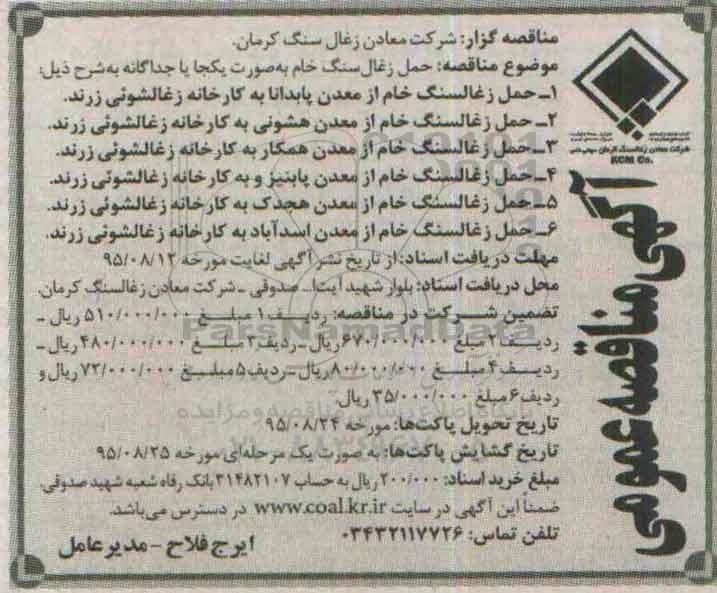 مناقصه گزار: شرکت معادن زغال سنگ کرمان.
موضوع مناقصه: حمل زغال سنگ خام به‌صورت یکجا یا جداگانه به‌شرح ذیل:
۱ـ حمل زغالسنگ خام از معدن پابدانا به کارخانه زغالشوئی زرند.
۲ـ حمل زغالسنگ خام از معدن هشونی به کارخانه زغالشوئی زرند.
۳ـ حمل زغالسنگ خام از معدن همکار به کارخانه زغالشوئی زرند.
۴ـ حمل زغالسنگ خام از معدن پابنیز و به کارخانه زغالشوئی زرند.
۵ـ حمل زغالسنگ خام از معدن هجدک به کارخانه زغالشوئی زرند.
۶ـ حمل زغالسنگ خام از معدن اسدآباد به کارخانه زغالشوئی زرند.
مهلت دریافت اسناد: از تاریخ نشر آگهی لغایت مورخه ۹۵/۰۸/۱۲
محل دریافت اسناد: بلوار شهید آیت‌ا... صدوقی ـ شرکت معادن زغالسنگ کرمان.
تضمین شرکت در مناقصه: ردیف ۱ مبلغ ۵۱۰/۰۰۰/۰۰۰ ریال ـ
ردیف ۲ مبلغ ۶۷۰/۰۰۰/۰۰۰ ریال ـ ردیف ۳ مبلغ ۴۸۰/۰۰۰/۰۰۰ ریال ـ
ردیف ۴ مبلغ ۸۰/۰۰۰/۰۰۰ ریال ـ ردیف ۵ مبلغ ۷۲/۰۰۰/۰۰۰ ریال و
ردیف ۶ مبلغ ۳۵/۰۰۰/۰۰۰ ریال.
تاریخ تحویل پاکت‌ها: مورخه ۹۵/۰۸/۲۴
تاریخ گشایش پاکت‌ها: به صورت یک مرحله‌ای مورخه ۹۵/۰۸/۲۵
مبلغ خرید اسناد: ۲۰۰/۰۰۰ ریال به حساب ۳۱۴۸۲۱۰۷ بانک رفاه شعبه شهید صدوقی
ضمناً این آگهی در سایت www.coal.kr.ir در دسترس می‌باشد.
تلفن تماس: ۰۳۴۳۲۱۱۷۷۲۶
ایرج فلاح - مدیرعامل
شرکت معادن زغالسنگ کرمان
KCM Co.
آگهی مناقصه عمومی
ParsNamadData
پایگاه اطلاع رسانی مناقصه و مزایده